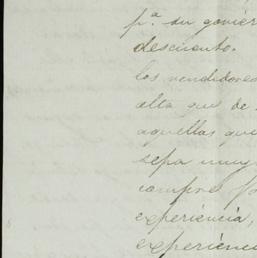 pª su gobier
descuento.
los vendedores
alta que de
aquellas que
sepa muy
compre
experiencia,
experienc